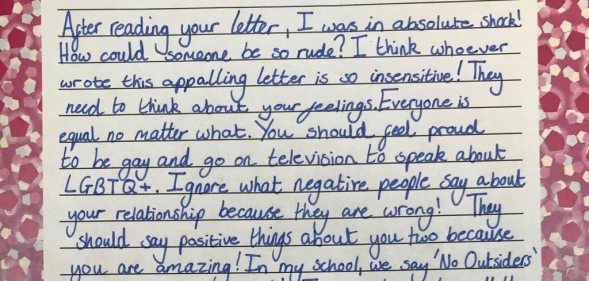 After reading your letter, I was in absolute shock!
How could someone be so rude? I think whoever
wrote this appalling letter is so insensitive! They
need to think about your feelings. Everyone is
equal no matter what. You should feel proud
to be gay and go on television to speak about
LGBTQ+. Ignore what negative people say about
your relationship because they are wrong! They
should say positive things about you two because
you are amazing! In my school, we say 'No Outsiders'